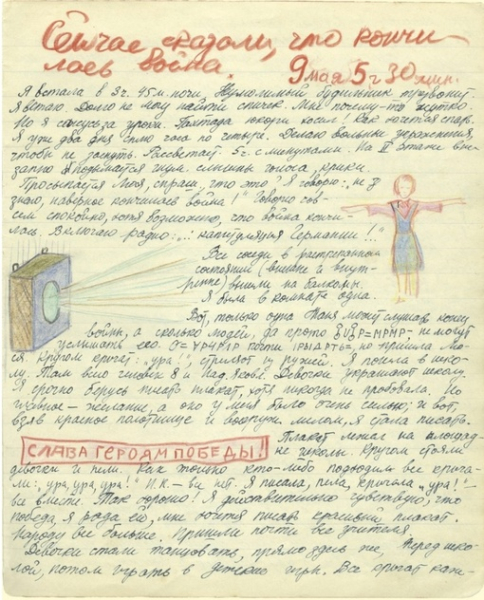 Сейчас сказали, что кончи-
лась война. 9 мая 5 ч 30 мин.
Я встала в 3 ч. 45 м. ночи. Неумолимый будильник трезвонит.
Я встаю. Долго не могу найти спичек. Мне почему-то жутко.
Но я сажусь за уроки. Как хочется спать.
Я уже два дня сплю часа по четыре. Делаю вольные упражнения,
чтобы не заснуть. Рассветает. 5 ч. с минутами. На II этаже вне-
запно поднимается шум. слышны голоса, крики.
Просыпается Лёля, спраш. что это? Я говорю: „не
знаю, наверное кончилась война!" Говорю сов-
сем спокойно, хотя возможно, что война кончи-
лась. Включаю радио: „..! капитуляция Германии!.."
Все соседи в растрепанном
состоянии (внешне и внут-
ренне) вышли на балконы.
Я была в комнате одна.
Вот, только одна Таня может слушать конец
войны, а сколько людей, да просто не могут
услышать его. почти но пришла Лю-
ся. Кругом кричат: „ура!", стреляют из ружей. Я пошла в шко-
лу. Там было человек 8 и Над. Яковл. Девочки украшают школу.
Я срочно берусь писать плакат, хотя никогда не пробовала. Но
главное – желание, а оно у меня было очень сильно; и вот,
взяв красное полотнище и вооруж. мелом, я стала писать.
СЛАВА ГЕРОЯМ ПОБЕДЫ!
Плакат лежал на площад-
ке школы. Кругом стояли
девочки и пели. Как только кто-либо подходил все крича-
ли: „ура, ура, ура!" И.К. – все нет. Я писала, пела, кричала „ура!" –
все вместе. Так хорошо! Я действительно чувствую, что
победа, я рада ей, мне хочется писать красивый плакат.
Народу все больше. Пришли почти все учителя.
Девочки стали танцовать, прямо здесь же, перед шко-
лой, потом играть в детские игры. Все кричат каж-